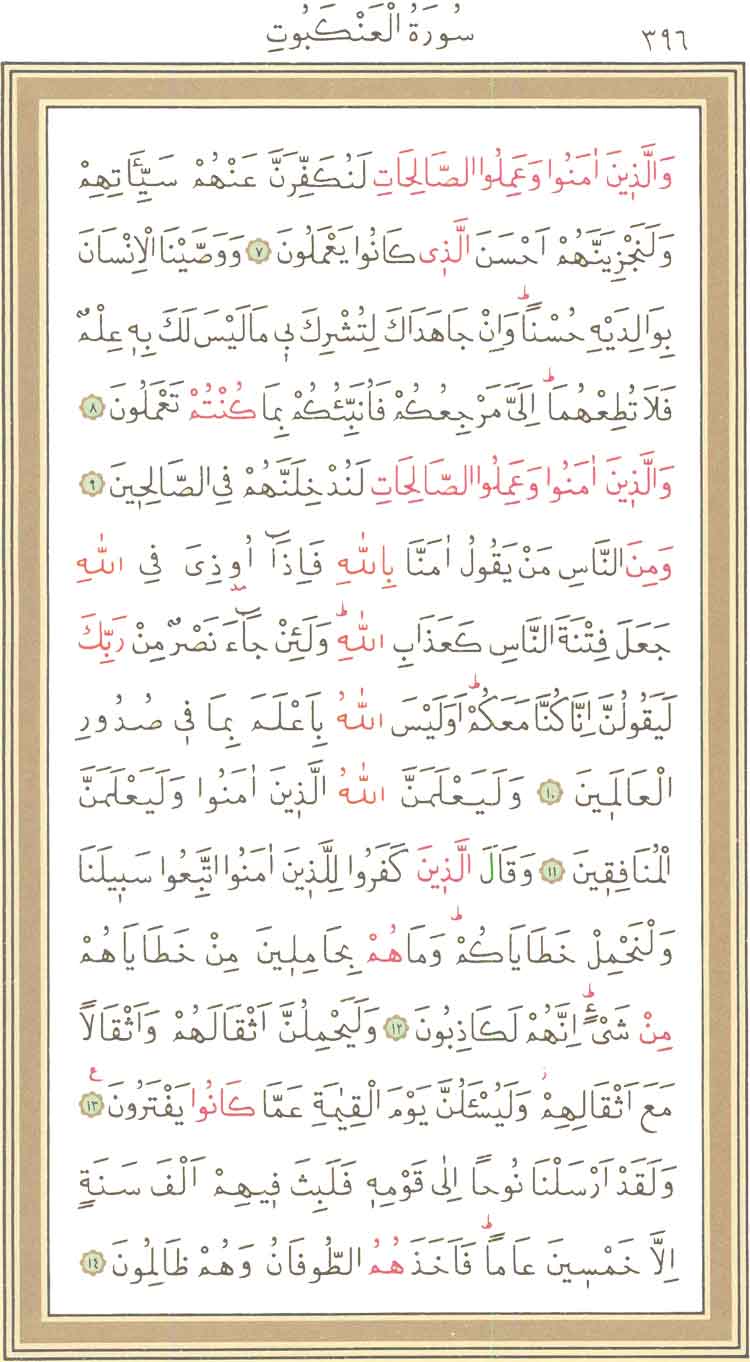 سُورَةُ الْعَنْكَبُوتِ ٣٩٦
وَالَّذ۪ينَ اٰمَنُوا وَعَمِلُوا الصَّالِحَاتِ لَنُكَفِّرَنَّ عَنْهُمْ سَيِّـَٔاتِهِمْ
وَلَنَجْزِيَنَّهُمْ اَحْسَنَ الَّذ۪ى كَانُوا يَعْمَلُونَ ٧ وَوَصَّيْنَا الْاِنْسَانَ
بِوَالِدَيْهِ حُسْنًاۜ وَاِنْ جَاهَدَاكَ لِتُشْرِكَ ب۪ى مَا لَيْسَ لَكَ بِه۪ عِلْمٌ
فَلَا تُطِعْهُمَاۜ اِلَىَّ مَرْجِعُكُمْ فَاُنَبِّئُكُمْ بِمَا كُنْتُمْ تَعْمَلُونَ ٨
وَالَّذ۪ينَ اٰمَنُوا وَعَمِلُوا الصَّالِحَاتِ لَنُدْخِلَنَّهُمْ فِى الصَّالِح۪ينَ ٩
وَمِنَ النَّاسِ مَنْ يَقُولُ اٰمَنَّا بِاللّٰهِ فَاِذَٓا اُو۫ذِىَ فِى اللّٰهِ
جَعَلَ فِتْنَةَ النَّاسِ كَعَذَابِ اللّٰهِۜ وَلَئِنْ جَٓاءَ نَصْرٌ مِنْ رَبِّكَ
لَيَقُولُنَّ اِنَّا كُنَّا مَعَكُمْۜ اَوَلَيْسَ اللّٰهُ بِاَعْلَمَ بِمَا ف۪ى صُدُورِ
الْعَالَم۪ينَ ١٠ وَلَيَعْلَمَنَّ اللّٰهُ الَّذ۪ينَ اٰمَنُوا وَلَيَعْلَمَنَّ
الْمُنَافِق۪ينَ ١١ وَقَالَ الَّذ۪ينَ كَفَرُوا لِلَّذ۪ينَ اٰمَنُوا اتَّبِعُوا سَب۪يلَنَا
وَلْنَحْمِلْ خَطَايَاكُمْۜ وَمَا هُمْ بِحَامِل۪ينَ مِنْ خَطَايَاهُمْ
مِنْ شَىْءٍۜ اِنَّهُمْ لَكَاذِبُونَ ١٢ وَلَيَحْمِلُنَّ اَثْقَالَهُمْ وَاَثْقَالًا
مَعَ اَثْقَالِهِمْۘ وَلَيُسْـَٔلُنَّ يَوْمَ الْقِيٰمَةِ عَمَّا كَانُوا يَفْتَرُونَ ع ١٣
وَلَقَدْ اَرْسَلْنَا نُوحًا اِلٰى قَوْمِه۪ فَلَبِثَ ف۪يهِمْ اَلْفَ سَنَةٍ
اِلَّا خَمْس۪ينَ عَامًاۜ فَاَخَذَهُمُ الطُّوفَانُ وَهُمْ ظَالِمُونَ ١٤